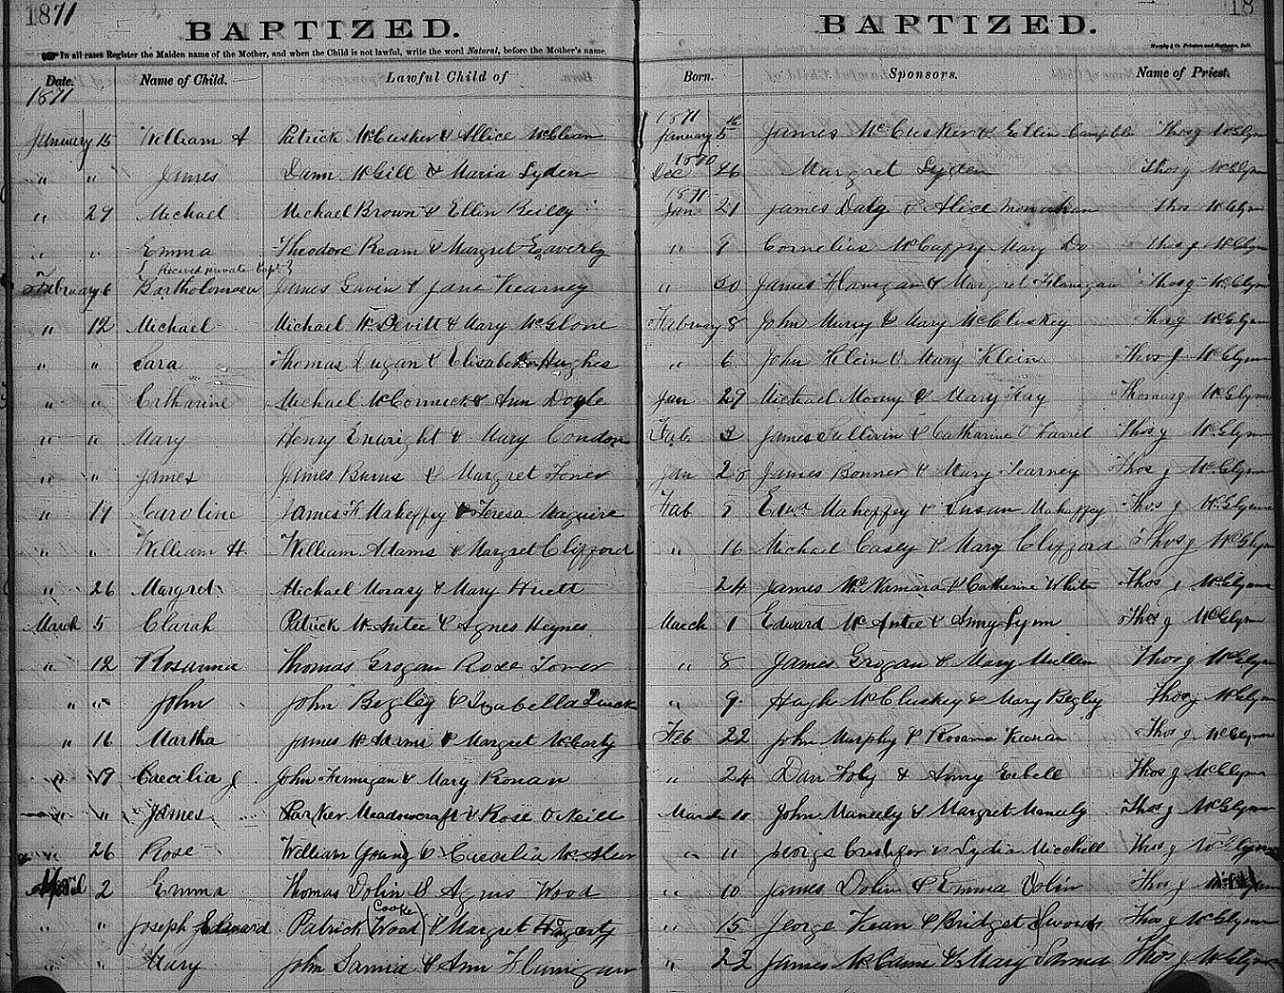 1871 BAPTIZED. BAPTIZED. 18
In all cases Register the Maiden name of the Mother, and when the Child is not lawful, write the word Natural, before the Mother's name.
Date. Name of Child. Lawful Child of Born. Sponsors. Name of Priest.
1871 1871
January 15 William A Patrick McCusker & Allice McGlean January 5th James McCusker & Ellin Campble Thos J McGlynn
1870
" " James Dann McGill & Maria Lyden Dec 26 Margret Lyden Thos J McGlynn
1871
" 29 Michael Michael Brown & Ellin Reilly Jan 21 James Daly & Alice Monahan Thos McGlynn
" " Emma Theodore Ream & Margret " 9 Cornelius McCaffry Mary Do Thos J McGlynn
{ Received private Bapt. }
February 6 Bartholomew James Gavin & Jane Kearney " 30 James Flanigan & Margret Flanigan Thos J McGlynn
" 12 Michael Michael McDevitt & Mary McGlone February 8 John Murry & Mary McCluskey Thos J McGlynn
" " Sara Thomas Dugan & Elisabeth Hughes " 6 John Klein & Mary Klein Thos J. McGlynn
" " Catharine Michael McCormick & Ann Doyle Jan 29 Michael Moony & Mary Kay Thomas J McGlynn
" " Mary Henry Enwright & Mary Condon Fab. 3 James Sullivin & Catharine O Farrel Thos J McGlynn
" " James James Burns & Margret Toner Jan 28 James Bonner & Mary Tearney Thos J McGlynn
" 19 Caroline James F Mahoffey & Teresa Maguire Fab 5 Edwd Mahoffey & Susan Mahoffey Thos J. McGlynn
" " William H. William Adams & Margret Clifford " 16 Michael Casey & Mary Clifford Thos J McGlynn
" 26 Margret Michael Morasy & Mary Huett 24 James McNamara & Catherine White Thos J McGlynn
March 5 Clarah Patrick McAntee & Agnes Heynes March 1 Edward McAntee & Anny Lynn Thos J McGlynn
" 12 Rosanna Thomas Grogan Rose Toner " 8 James Grogan & Mary Mullen Thos J McGlynn
" " John John Begley & Isabella Quick " 9 Hugh McCluskey & Mary Begley Thos J McGlynn
" 16 Martha James & Margret McCarty Feb 22 John Murphy & Rosana Keenan Thos J. McGlynn
" 19 Caecilia J John Finnigan & Mary Ronan " 24 Dan Foly & Anny Thos J McGlynn
" " James Parker Meadowcraft & Rose O Neill March 10 John Maneely & Margret Maneely Thos J McGlynn
" 26 Rose William Young & Caecilia McAleer " 11 George & Lydia Micchell Thos J McGlynn
April 2 Emma Thomas Dolin & Agnes Wood " 10 James Dolin & Emma Dolin Thos J McGlynn
Cooke
" " Joseph Edward Patrick (Wood) & Margret Hagerty " 15 George Kean & Bridget Swords Thos J McGlynn
" " Mary John & Ann Flannigan " 22 James McCann & Mary Thos J McGlynn